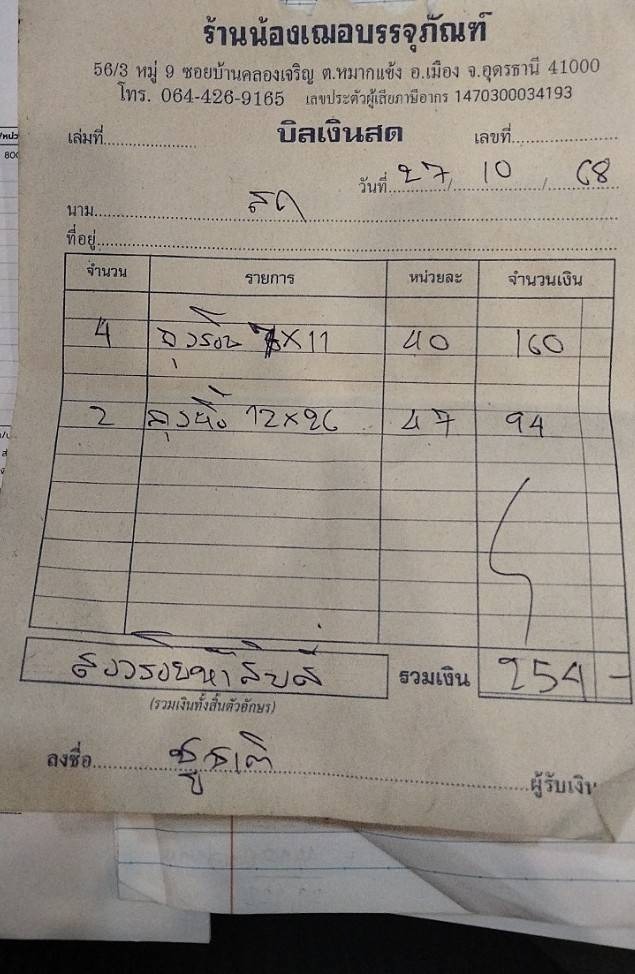 ร้านน้องเฌอบรรจุภัณฑ์
56/3 หมู่ 9 ซอยบ้านคลองเจริญ ต.หมากแข้ง อ.เมือง จ.อุดรธานี 41000
โทร. 064-426-9165 เลขประจำตัวผู้เสียภาษีอากร 1470300034193
เล่มที่ บิลเงินสด เลขที่
วันที่ 27/10/68
นาม สด
ที่อยู่
จำนวน รายการ หน่วยละ จำนวนเงิน
4 x11 40 160
2 12x26 47 94
สองร้อยห้าสิบสี่ รวมเงิน 254-
(รวมเงินทั้งสิ้นตัวอักษร)
ลงชื่อ ผู้รับเงิน